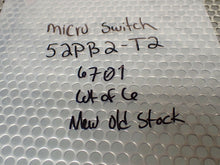 micro switch
52PB2-T2
6701
Lot of 6
New Old Stock